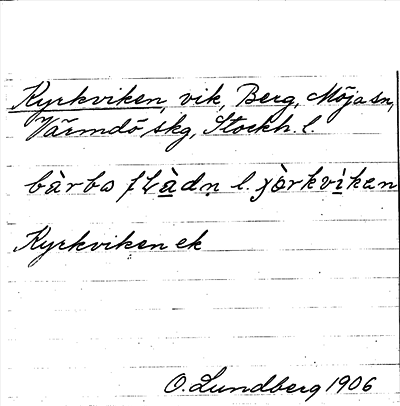 Kyrkviken, vik, Berg, Möja sn,
Värmdö skg, Stockh. l.
bàrbo flàdṇ l. yòrkvìkan
Kyrkviken ek
O. Lundberg 1906